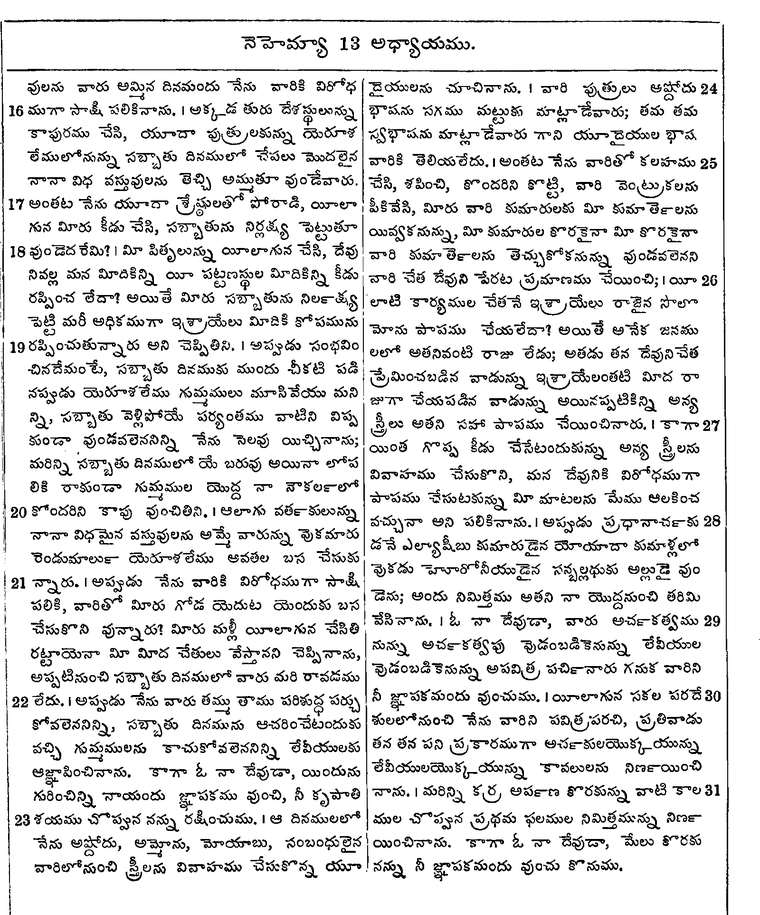 నెహెమ్యా 13 అధ్యాయము.
వులను వారు అమ్మిన దినమందు నేను వారికి విరోధ
16 ముగా సాక్షి పలికినాను. । అక్కడ తురు దేశస్థులున్ను
కాపురము చేసి, యూదా పుత్రులకున్ను యెరూశ
లేములోనున్ను సబ్బాతు దినములో చేపలు మొదలైన
నానా విధ వస్తువులను తెచ్చి అమ్ముతూ వుండేవారు.
17 అంతట నేను యూదా శ్రేష్ఠులతో పోరాడి, యీలా
గున మీరు కీడు చేసి, సబ్బాతును నిర్లక్ష్య పెట్టుతూ
18 వుండెదరేమి? । మీ పితృలున్ను యీలాగున చేసి, దేవు
నివల్ల మన మీదికిన్ని యీ పట్టణస్థుల మీదికిన్ని కీడు
రప్పించ లేదా? అయితే మీరు సబ్బాతును నిర్లక్ష్య
పెట్టి మరీ అధికముగా ఇశ్రాయేలు మీదికి కోపమును
19 రప్పించుతున్నారు అని చెప్పితిని. । అప్పుడు సంభవిం
చినదేమంటే, సబ్బాతు దినముకు ముందు చీకటి పడి
నప్పుడు యెరూశలేము గుమ్మములు మూసివేయు మని
న్ని, సబ్బాతు వెళ్లిపోయే పర్యంతము వాటిని విప్ప
కుండా వుండవలెననిన్ని నేను సెలవు యిచ్చినాను;
మరిన్ని సబ్బాతు దినములో యే బరువు అయినా లోప
లికి రాకుండా గుమ్మముల యొద్ద నా నౌకర్లలో
20 కోందరిని కాపు వుంచితిని. । ఆలాగు వర్తకులున్ను
నానా విధమైన వస్తువులను అమ్మే వారున్ను వొకమారు
రెండుమార్లు యెరూశలేము అవతల బస చేసుకు
21 న్నారు. । అప్పుడు నేను వారికి విరోధముగా సాక్షి
పలికి, వారితో మీరు గోడ యెదుట యెందుకు బస
చేసుకొని వున్నారు? మీరు మళ్లీ యీలాగున చేసితి
రట్టాయెనా మీ మీద చేతులు వేస్తానని చెప్పినాను,
అప్పటినుంచి సబ్బాతు దినములో వారు మరి రావడము
22 లేదు. । అప్పుడు నేను వారు తమ్ము తాము పరిశుద్ధ పర్చు
కోవలెననిన్ని, సబ్బాతు దినమును ఆచరించేటందుకు
వచ్చి గుమ్మములను కాచుకోవలెననిన్ని లేవీయులకు
ఆజ్ఞాపించినాను. కాగా ఓ నా దేవుడా, యిందును
గురించిన్ని నాయందు జ్ఞాపకము వుంచి, నీ కృపాతి
23 శయము చొప్పున నన్ను రక్షించుము. । ఆ దినములలో
నేను అష్డోదు, అమ్మోను, మోయాబు, సంబంధులైన
వారిలోనుంచి స్త్రీలను వివాహము చేసుకొన్న యూ
దైయులను చూచినాను. । వారి పుత్రులు అష్డోదు 24
భాషను సగము మట్టుకు మాట్లాడేవారు; తమ తమ
స్వభాషను మాట్లాడేవారు గాని యూదైయుల భాష
వారికి తెలియలేదు. । అంతట నేను వారితో కలహము 25
చేసి, శపించి, కొందరిని కొట్టి, వారి వెంట్రుకలను
పీకివేసి, మీరు వారి కుమారులకు మీ కుమార్తెలను
యివ్వకనున్ను, మీ కుమారుల కొరకైనా మీ కొరకైనా
వారి కుమార్తెలను తెచ్చుకోకనున్ను వుండవలెనని
వారి చేత దేవుని పేరట ప్రమాణము చేయించి; । యీ 26
లాటి కార్యముల చేతనే ఇశ్రాయేలు రాజైన సొలొ
మోను పాపము చేయలేదా? అయితే అనేక జనము
లలో అతనివంటి రాజు లేడు; అతడు తన దేవునిచేత
ప్రేమించబడిన వాడున్ను ఇశ్రాయేలంతటి మీద రా
జుగా చేయపడిన వాడున్ను అయినప్పటికిన్ని అన్య
స్త్రీలు అతని సహా పాపము చేయించినారు. । కాగా 27
యింత గొప్ప కీడు చేసేటందుకున్ను అన్య స్త్రీలను
వివాహము చేసుకొని, మన దేవునికి విరోధముగా
పాపము చేసుటకున్ను మీ మాటలను మేము ఆలకించ
వచ్చునా అని పలికినాను. । అప్పుడు ప్రధానార్చకు 28
డనే ఎల్యాషీబు కుమారుడైన యోయాదా కుమాళ్లలో
వొకడు హూరోనీయుడైన సన్బల్లథుకు అల్లుడై వుం
డెను; అందు నిమిత్తము అతని నా యొద్దనుంచి తరిమి
వేసినాను. । ఓ నా దేవుడా, వారు అర్చకత్వము 29
నున్ను అర్చకత్వపు వొడంబడికెనున్ను లేవీయుల
వొడంబడికెనున్ను అపవిత్ర పర్చినారు గనుక వారిని
నీ జ్ఞాపకమందు వుంచుము. । యీలాగున సకల పరదే 30
శులలోనుంచి నేను వారిని పవిత్రపరచి, ప్రతివాడు
తన తన పని ప్రకారముగా అర్చకులయొక్కయున్ను
లేవీయులయొక్కయున్ను కావలులను నిర్ణయించి
నాను. । మరిన్ని కర్ర అర్పణ కొరకున్ను వాటి కాల 31
ముల చొప్పున ప్రథమ ఫలముల నిమిత్తమున్ను నిర్ణ
యించినాను. కాగా ఓ నా దేవుడా, మేలు కొరకు
నన్ను నీ జ్ఞాపకమందు వుంచు కొనుము.